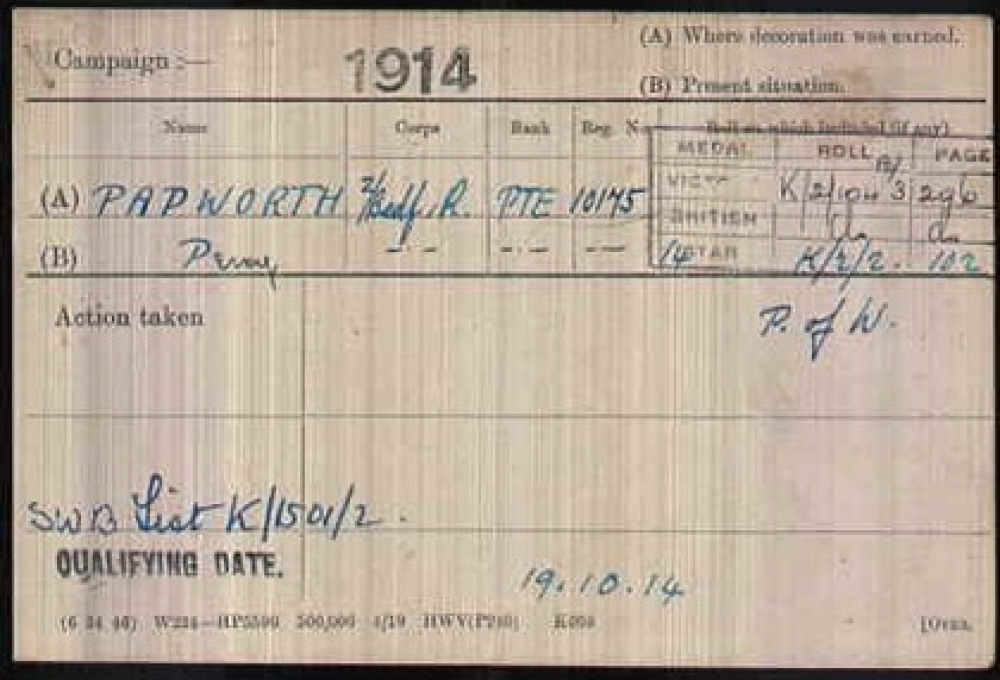 Campaign :— 1914 (A) Where decoration was earned.
(B) Present situation.
Name Corps Rank Reg. No. Roll on which included (if any)
MEDAL ROLL PAGE
(A) PAPWORTH 2/Bedf. R. PTE 10175 VICTY K/2/104 B/3 296
BRITISH do do
(B) Percy —·— —·— —— 14 STAR K/2/2. 102
Action taken P. of W.
SWB List K/1501/2.
QUALIFYING DATE. 19.10.14
(6 34 46) W234—HP5590 500,000 4/19 HWV(P240) K608 [Over.